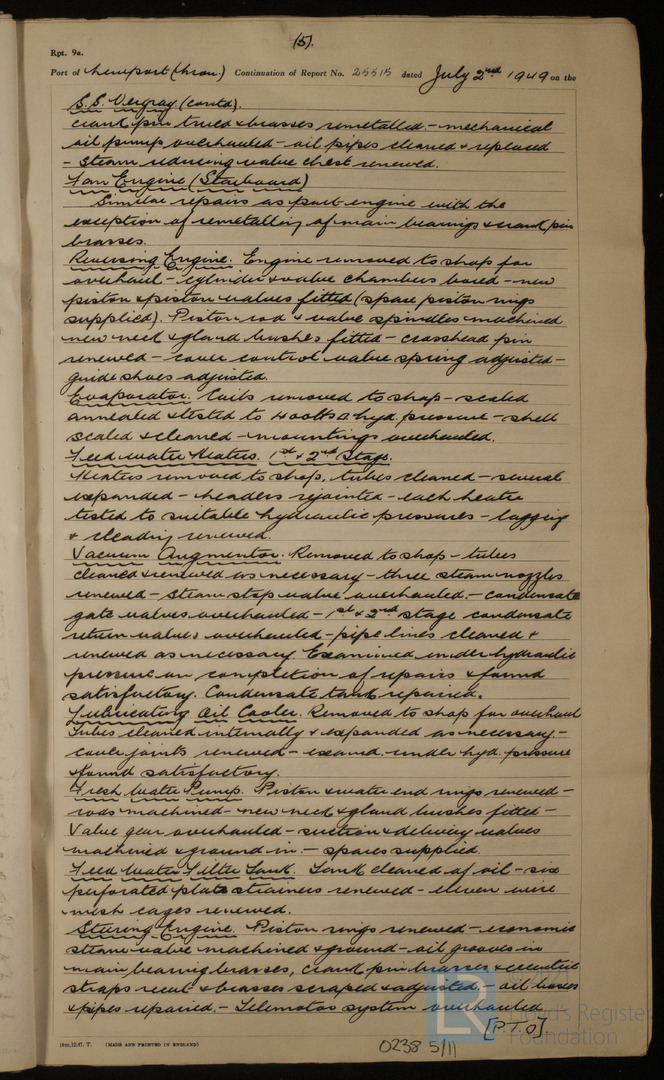 (5).
Rpt. 9a.
Port of Newport (Mon.) Continuation of Report No. 25515 dated July 2nd 1949 on the
S.S. Vergray (contd).
crank pin trued & brasses remetalled – mechanical
oil pump overhauled – oil pipes cleaned & replaced
– steam reducing valve chest renewed.
Fan Engine (Starboard)
Similar repairs as port engine with the
exception of remetalling of main bearings & crank pin
brasses.
Reversing Engine. Engine removed to shop for
overhaul – cylinder & valve chambers bored – new
piston & piston valves fitted (spare piston rings
supplied). Piston rod & valve spindles machined
new neck & gland bushes fitted – crosshead pin
renewed – cover control valve spring adjusted –
guide shoes adjusted.
Evaporator. Coils removed to shop – scaled
annealed & tested to 400 lbs □" hyd. pressure – shell
scaled & cleaned – mountings overhauled.
Feed water Heaters. 1st & 2nd Stage.
Heaters removed to shop, tubes cleaned – several
expanded – headers rejointed – each heater
tested to suitable hydraulic pressures – lagging
& cleading renewed.
Vacuum Augmentor. Removed to shop – tubes
cleaned & renewed as necessary – three steam nozzles
renewed – steam stop valve overhauled. – condensate
gate valves overhauled – 1st & 2nd stage condensate
return valves overhauled – pipe lines cleaned &
renewed as necessary. Examined under hydraulic
pressure on completion of repairs & found
satisfactory. Condensate tank repaired.
Lubricating Oil Cooler. Removed to shop for overhaul
Tubes cleaned internally & expanded as necessary. –
cover joints renewed – examd. under hyd. pressure
& found satisfactory.
Fresh Water Pump. Piston & water end rings renewed –
rods machined – new neck & gland bushes fitted –
Valve gear overhauled – suction & delivery valves
machined & ground in. – spares supplied.
Feed Water Filter Tank. Tank cleaned of oil – six
perforated plate strainers renewed – eleven wire
mesh cages renewed.
Steering Engine. Piston rings renewed – economic
steam valve machined & ground – oil grooves in
main bearing brasses, crank pin brasses & eccentric
straps recut & brasses scraped & adjusted. – oil boxes
& pipes repaired. – Telemotor system overhauled
[P.T.O]
Lloyd's Register
Foundation
(MADE AND PRINTED IN ENGLAND)
0238 5/11